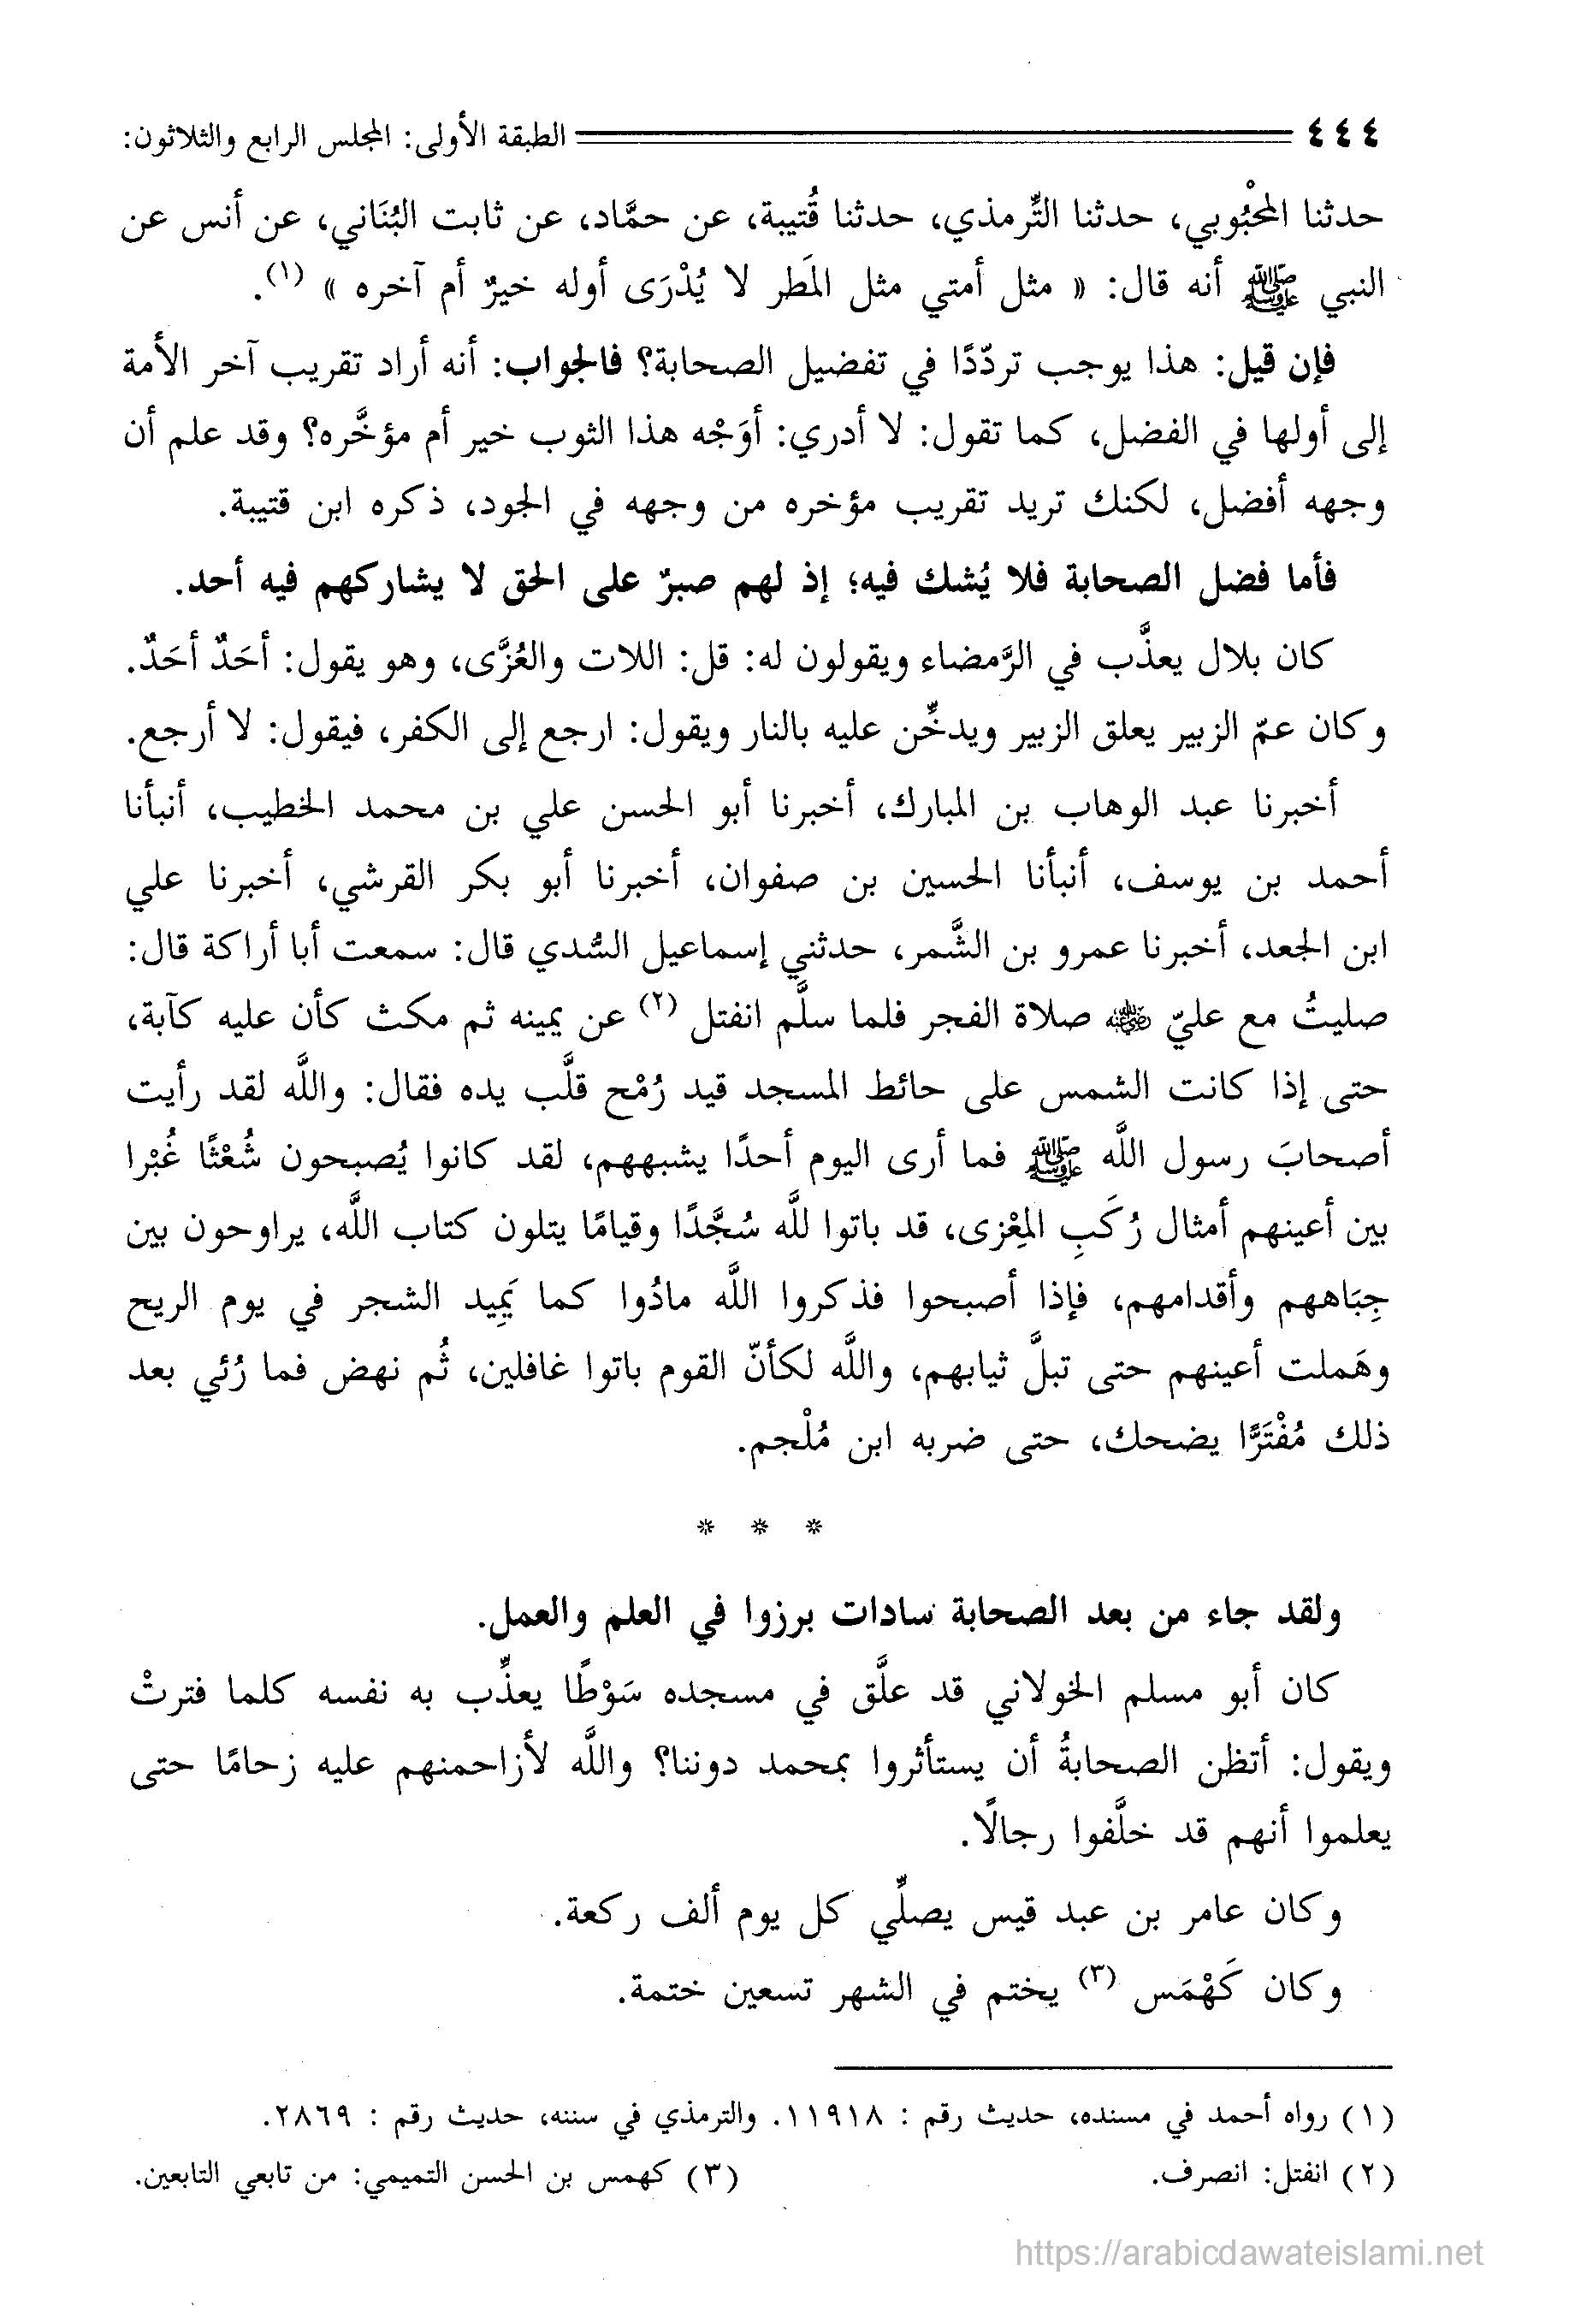 ٤٤٤ الطبقة الأولى: المجلس الرابع والثلاثون:
حدثنا المحْبُوبي، حدثنا التِّرمذي، حدثنا قُتيبة، عن حمَّاد، عن ثابت البُنَاني، عن أنس عن
النبي ﷺ أنه قال: « مثل أمتي مثل المَطر لا يُدْرَى أوله خيرٌ أم آخره » (١).
فإن قيل: هذا يوجب تردّدًا في تفضيل الصحابة؟ فالجواب: أنه أراد تقريب آخر الأمة
إلى أولها في الفضل، كما تقول: لا أدري: أوَجْه هذا الثوب خير أم مؤخَّره؟ وقد علم أن
وجهه أفضل، لكنك تريد تقريب مؤخره من وجهه في الجود، ذكره ابن قتيبة.
فأما فضل الصحابة فلا يُشك فيه؛ إذ لهم صبرٌ على الحق لا يشاركهم فيه أحد.
كان بلال يعذَّب في الرَّمضاء ويقولون له: قل: اللات والعُزَّى، وهو يقول: أحَدٌ أحَدٌ.
وكان عمّ الزبير يعلق الزبير ويدخِّن عليه بالنار ويقول: ارجع إلى الكفر، فيقول: لا أرجع.
أخبرنا عبد الوهاب بن المبارك، أخبرنا أبو الحسن علي بن محمد الخطيب، أنبأنا
أحمد بن يوسف، أنبأنا الحسين بن صفوان، أخبرنا أبو بكر القرشي، أخبرنا علي
ابن الجعد، أخبرنا عمرو بن الشَّمر، حدثني إسماعيل السُّدي قال: سمعت أبا أراكة قال:
صليتُ مع عليّ رضي الله عنه صلاة الفجر فلما سلَّم انفتل (٢) عن يمينه ثم مكث كأن عليه كآبة،
حتى إذا كانت الشمس على حائط المسجد قيد رُمْح قلَّب يده فقال: واللَّه لقد رأيت
أصحابَ رسول اللَّه ﷺ فما أرى اليوم أحدًا يشبههم، لقد كانوا يُصبحون شُعْثًا غُبْرا
بين أعينهم أمثال رُكَبِ المِعْزى، قد باتوا للَّه سُجَّدًا وقيامًا يتلون كتاب اللَّه، يراوحون بين
جِبَاههم وأقدامهم، فإذا أصبحوا فذكروا اللَّه مادُوا كما يَمِيد الشجر في يوم الريح
وهَملت أعينهم حتى تبلَّ ثيابهم، واللَّه لكأنّ القوم باتوا غافلين، ثُم نهض فما رُئي بعد
ذلك مُفْتَرًّا يضحك، حتى ضربه ابن مُلْجم.
* * *
ولقد جاء من بعد الصحابة سادات برزوا في العلم والعمل.
كان أبو مسلم الخولاني قد علَّق في مسجده سَوْطًا يعذِّب به نفسه كلما فترتْ
ويقول: أتظن الصحابةُ أن يستأثروا بمحمد دوننا؟ واللَّه لأزاحمنهم عليه زحامًا حتى
يعلموا أنهم قد خلَّفوا رجالًا.
وكان عامر بن عبد قيس يصلِّي كل يوم ألف ركعة.
وكان كَهْمَس (٣) يختم في الشهر تسعين ختمة.
(١) رواه أحمد في مسنده، حديث رقم : ١١٩١٨. والترمذي في سننه، حديث رقم : ٢٨٦٩.
(٢) انفتل: انصرف. (٣) كهمس بن الحسن التميمي: من تابعي التابعين.
https://arabicdawateislami.net